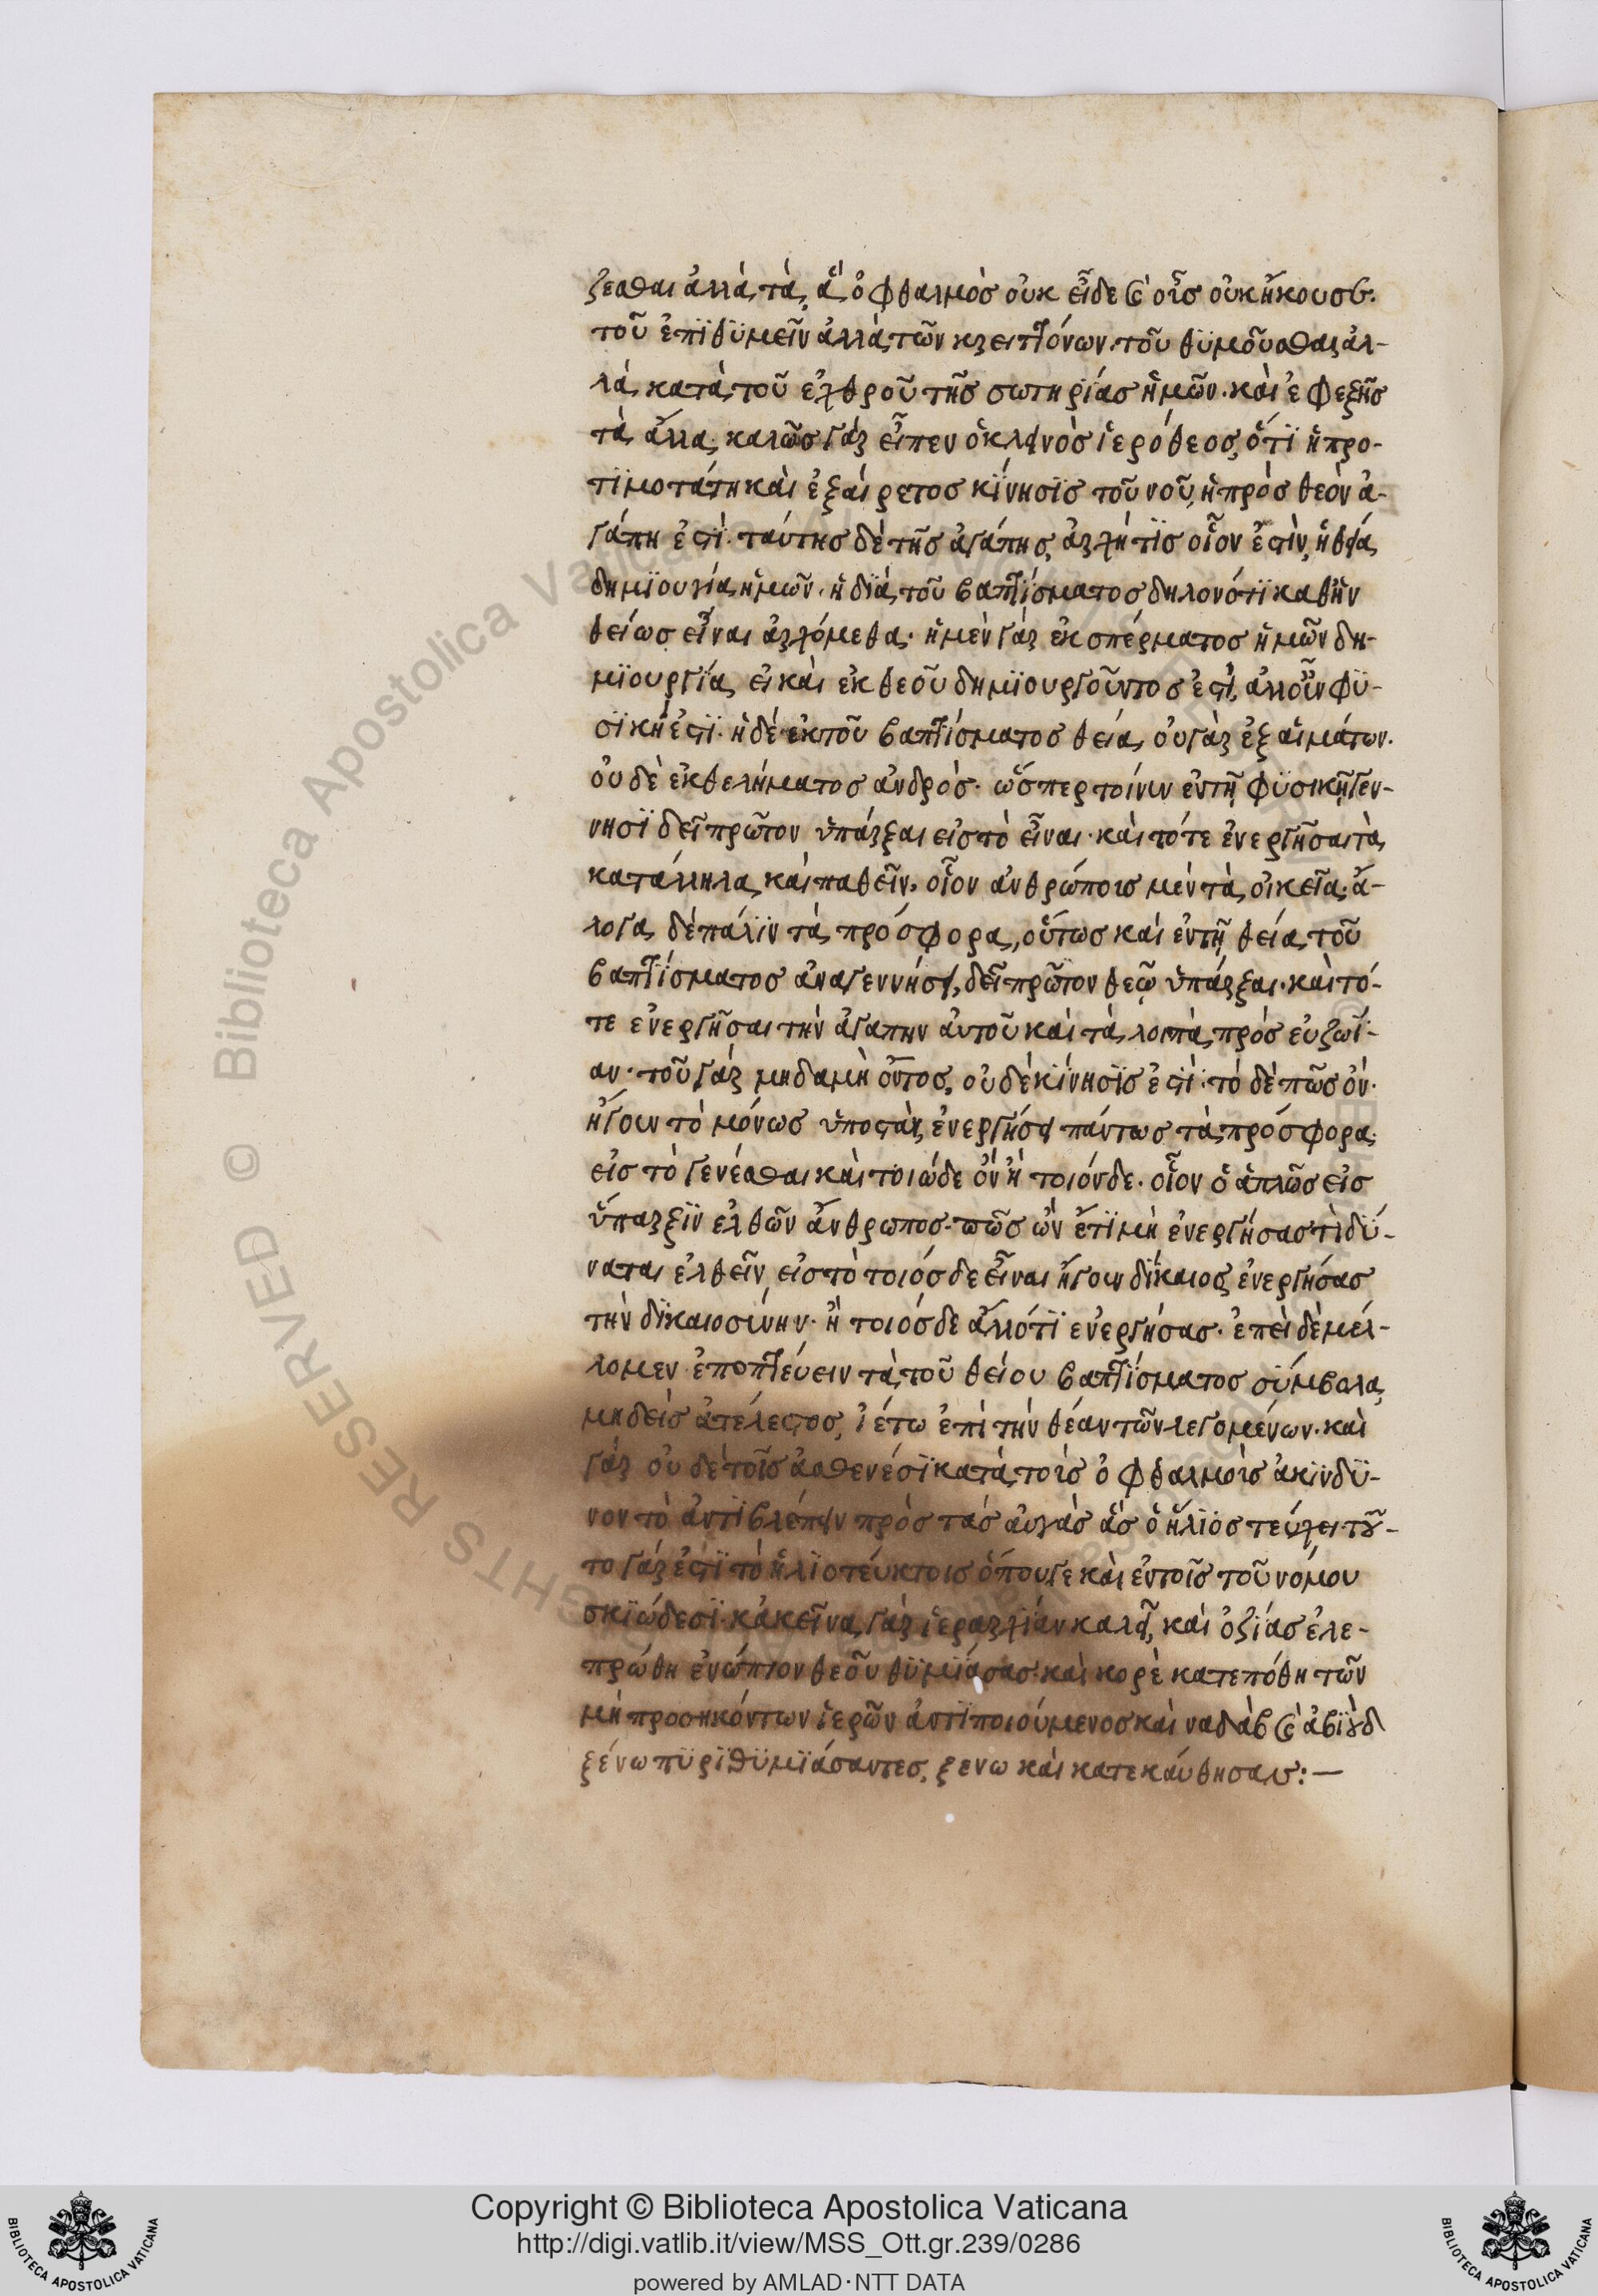 ζεσθαι ἀλλὰ τὰ, ἃ ὀφθαλμὸσ οὐκ εἶδε καὶ οἶσ οὐκ ἤκουσεν.
τοῦ ἐπϊθϋμεῖν ἀλλὰ τῶν κρειττόνων. τοῦ θϋμοῦσθαι ἀλ-
λὰ κατὰ τοῦ ἐχθροῦ τῆσ σωτηρίασ ἡμῶν. καὶ ἐφεξῆσ
τὰ ἄλλα. καλῶσ γὰρ εἶπεν ὁ κλεινὸσ ἱερόθεοσ, ὅτϊ ἡ προ-
τϊμοτάτη καὶ ἐξαίρετοσ κίνησϊσ τοῦ νοῦ, ἡ πρὸσ θεὸν ἀ-
γάπη ἐστί. ταύτησ δὲ τῆσ ἀγάπησ, ἀρχή τϊσ οἷον ἐστὶν, ἡ θεία
δημϊουργία ἡμῶν. ἡ δϊὰ τοῦ βαπτίσματοσ δηλονότϊ καθ ἣν
θείωσ εἶναι ἀρχόμεθα. ἡ μὲν γὰρ ἐκ σπέρματοσ ἡμῶν δη-
μϊουργία, εἰ καὶ ἐκ θεοῦ δημϊουργοῦντοσ ἐστί, ἀλλ οὖν φϋ-
σϊκή ἐστϊ. ἡ δὲ ἐκ τοῦ βαπτίσματοσ θεία, οὐ γὰρ ἐξ αἱμάτων.
οὐδὲ ἐκ θελήματοσ ἀνδρόσ. ὥσπερ τοίνυν ἐν τῇ φϋσικῇ γεν-
νησϊ δεῖ πρῶτον ὑπάρξαι εἰσ τὸ εἶναι. καὶ τότε ἐνεργῆσαι τὰ
κατάλληλα, καὶ παθεῖν. οἷον ἀνθρώποισ μὲν τὰ οἰκεῖα. ἄ-
λογα δὲ πάλϊν τὰ πρόσφορα, οὕτωσ καὶ ἐν τῇ θεία τοῦ
βαπτίσματοσ ἀναγεννήσει, δεῖ πρῶτον θεῷ ὑπάρξαι. καὶ τό-
τε ἐνεργῆσαι τὴν ἀγαπην αὐτοῦ καὶ τὰ λοιπὰ πρὸσ εὐζωΐ-
αν. τοῦ γὰρ μηδαμὴ ὄντοσ, οὐδὲ κίνησϊσ ἐστί. τὸ δὲ πῶσ ὄν.
ἤγουν τὸ μόνωσ ὑποστὰν, ἐνεργήσει πάντωσ τὰ πρόσφορα.
εἰσ τὸ γενέσθαι καὶ τοιώδε ὂν ἢ τοιόνδε. οἷον ὁ ἁπλῶσ εἰσ
ὕπαρξϊν ἐλθῶν ἄνθρωποσ. πῶσ ὢν ἔτϊ μὴ ἐνεργήσασ τὶ δύ-
ναται ἐλθεῖν, εἰσ τὸ τοιόσδε εἶναι ἤγουν δίκαιοσ, ἐνεργήσασ
τὴν δϊκαιοσύνην. ἢ τοιόσδε ἄλλό τϊ ἐνεργήσασ. ἐπεὶ δὲ μέλ-
λομεν ἐποπτεύειν τὰ τοῦ θείου βαπτίσματοσ σύμβολα,
μηδεὶσ ἀτέλεστοσ, ἰέτω ἐπὶ τὴν θέαν τῶν λεγομένων. καὶ
γὰρ οὐδὲ τοῖσ ἀσθενέσϊ κατὰ τοὺσ ὀφθαλμοὺσ ἀκϊνδϋ-
νον τὸ ἀντϊβλέπειν πρὸσ τὰσ αὐγὰσ ἃσ ὁ ἥλϊοσ τεύχει τοῦ-
το γὰρ ἐστϊ τὸ ἡλϊοτεύκτοισ ὅπουγε καὶ ἐν τοῖσ τοῦ νόμου
σκϊώδεσϊ. κἀκεῖνα γὰρ ἱεραρχίαν καλεῖ, καὶ ὀζίασ ἐλε-
πρώθη ἐνώπιον θεοῦ θϋμϊάσασ. καὶ κορὲ κατεπόθη τῶν
μὴ προσηκόντων ἱερῶν ἀντϊποιούμενοσ καὶ ναδὰβ καὶ ἀβϊοὺδ
ξένω πϋρϊ θϋμϊάσαντεσ, ξενω καὶ κατεκαύθησαν: —
Biblioteca Apostolica Vaticana
© Biblioteca Apostolica Vaticana
RIGHTS RESERVED
Copyright © Biblioteca Apostolica Vaticana
http://digi.vatlib.it/view/MSS_Ott.gr.239/0286
powered by AMLAD·NTT DATA
BIBLIOTECA APOSTOLICA VATICANA
BIBLIOTECA APOSTOLICA VATICANA